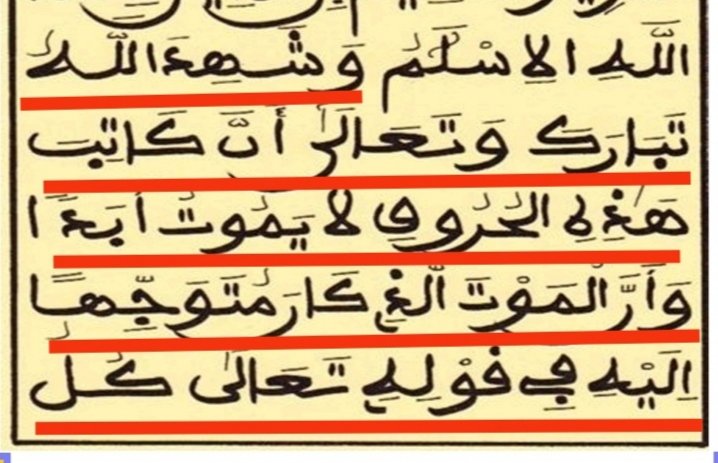 اللَّهِ الِاسْلَٰمِ وَشَهِدَ اللَّهُ
تَبَارَكَ وَتَعَالَىٰ أَنَّ كَاتِبَ
هَٰذِهِ الْحُرُوفِ لَا يَمُوتُ أَبَدًا
وَأَنَّ الْمَوْتَ الَّذِي كَانَ مُتَوَجِّهًا
إِلَيْهِ فِي قَوْلِهِ تَعَالَىٰ كُلُّ